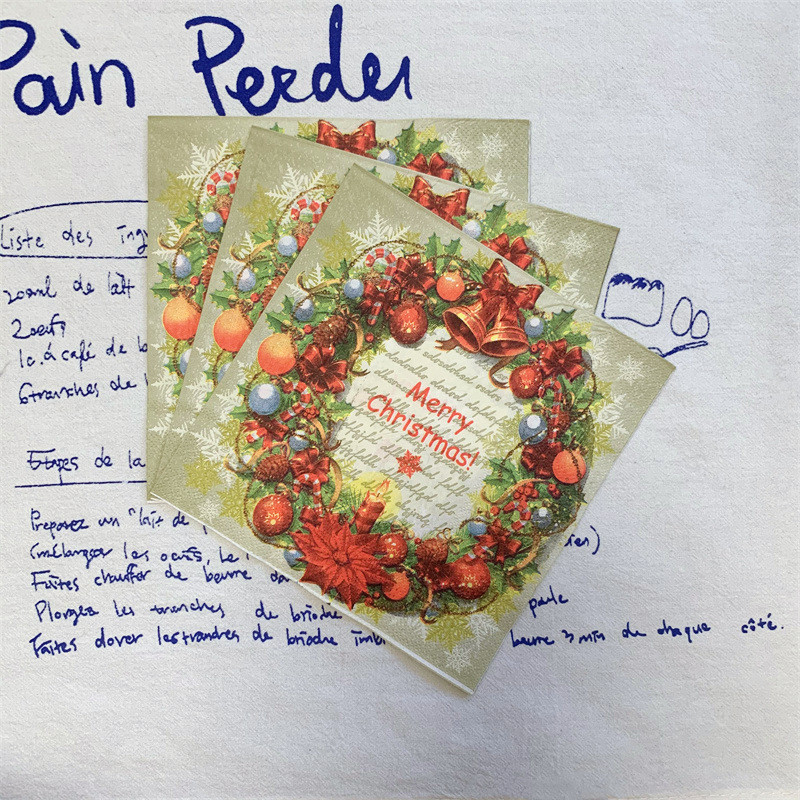 Pain Perdu
Liste des ing
200ml de lait
2 oeufs
1c.à café de b
6 tranches de
Merry
Christmas!
Etapes de la
Preparez un "lait de p
(mélanger les oeufs, le
Faites chauffer de beurre da
Plongez les tranches de brioche
poele
Faites dorer les tranches de brioche imb beurre 3 min de chaque côté.